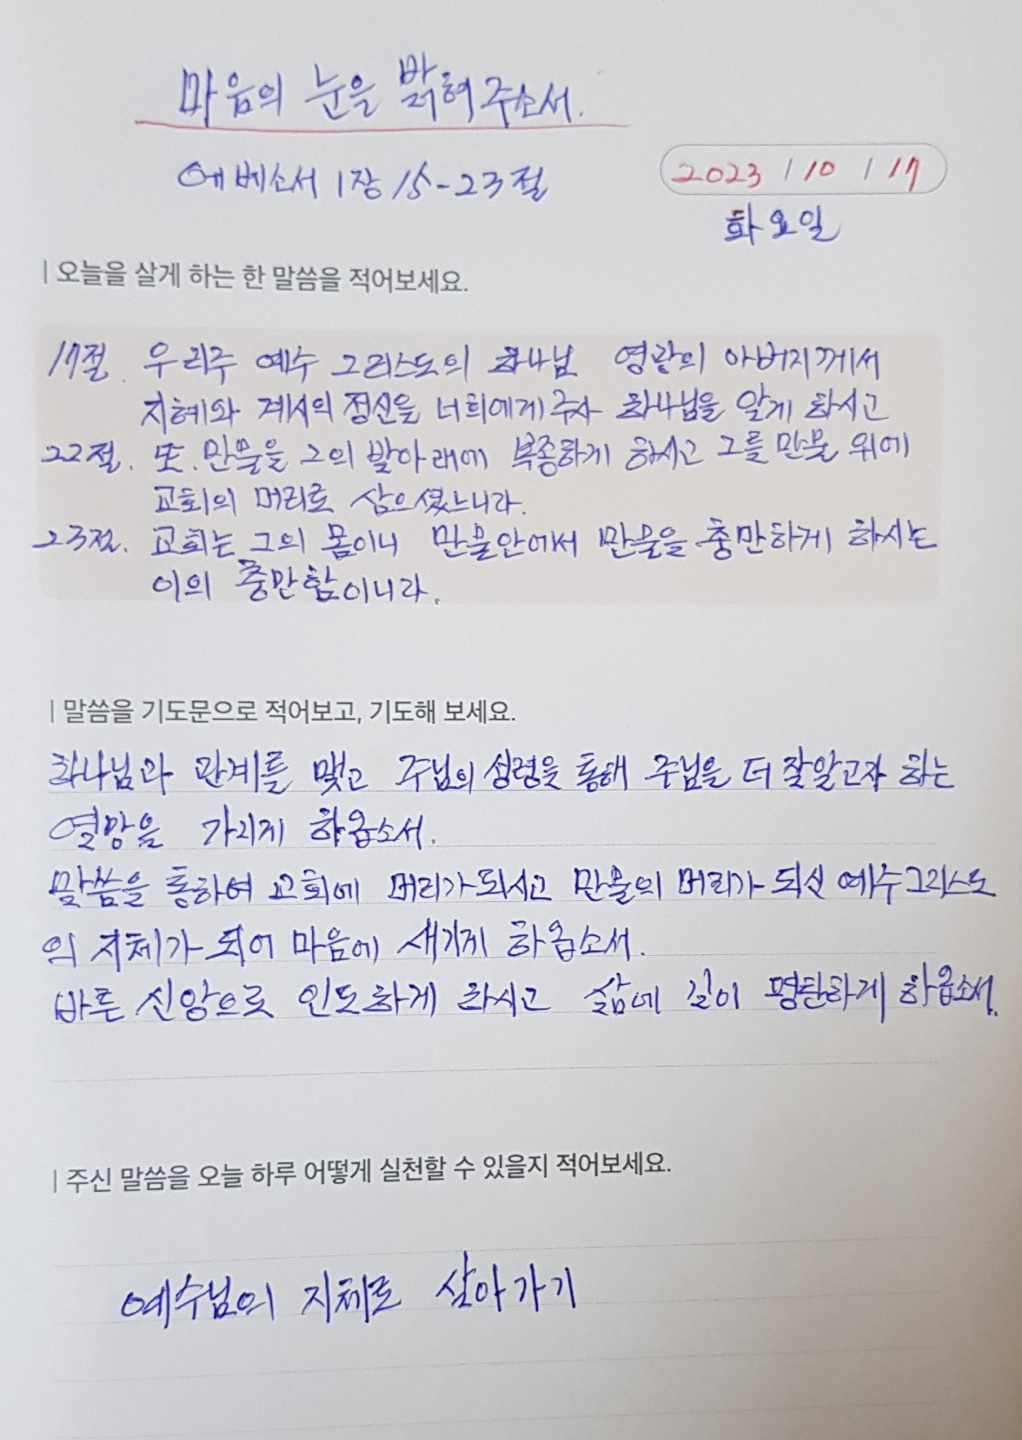 마음의 눈을 밝혀주소서.
에베소서 1장 15-23절
2023 / 10 / 17
화요일
| 오늘을 살게 하는 한 말씀을 적어보세요.
17절. 우리주 예수 그리스도의 하나님 영광의 아버지께서
지혜와 계시의 정신을 너희에게 주사 하나님을 알게 하시고
22절. 또.만물을 그의 발아래에 복종하게 하시고 그를 만물 위에
교회의 머리로 삼으셨느니라.
23절. 교회는 그의 몸이니 만물안에서 만물을 충만하게 하시는
이의 충만함이니라.
| 말씀을 기도문으로 적어보고, 기도해 보세요.
하나님과 관계를 맺고 주님의 성령을 통해 주님을 더 잘알고자 하는
열망을 가지게 하옵소서.
말씀을 통하여 교회에 머리가 되시고 만물의 머리가 되신 예수그리스도
의 지체가 되어 마음에 새기게 하옵소서.
바른 신앙으로 인도하게 하시고 삶에 길이 평탄하게 하옵소서.
| 주신 말씀을 오늘 하루 어떻게 실천할 수 있을지 적어보세요.
예수님의 지체로 살아가기